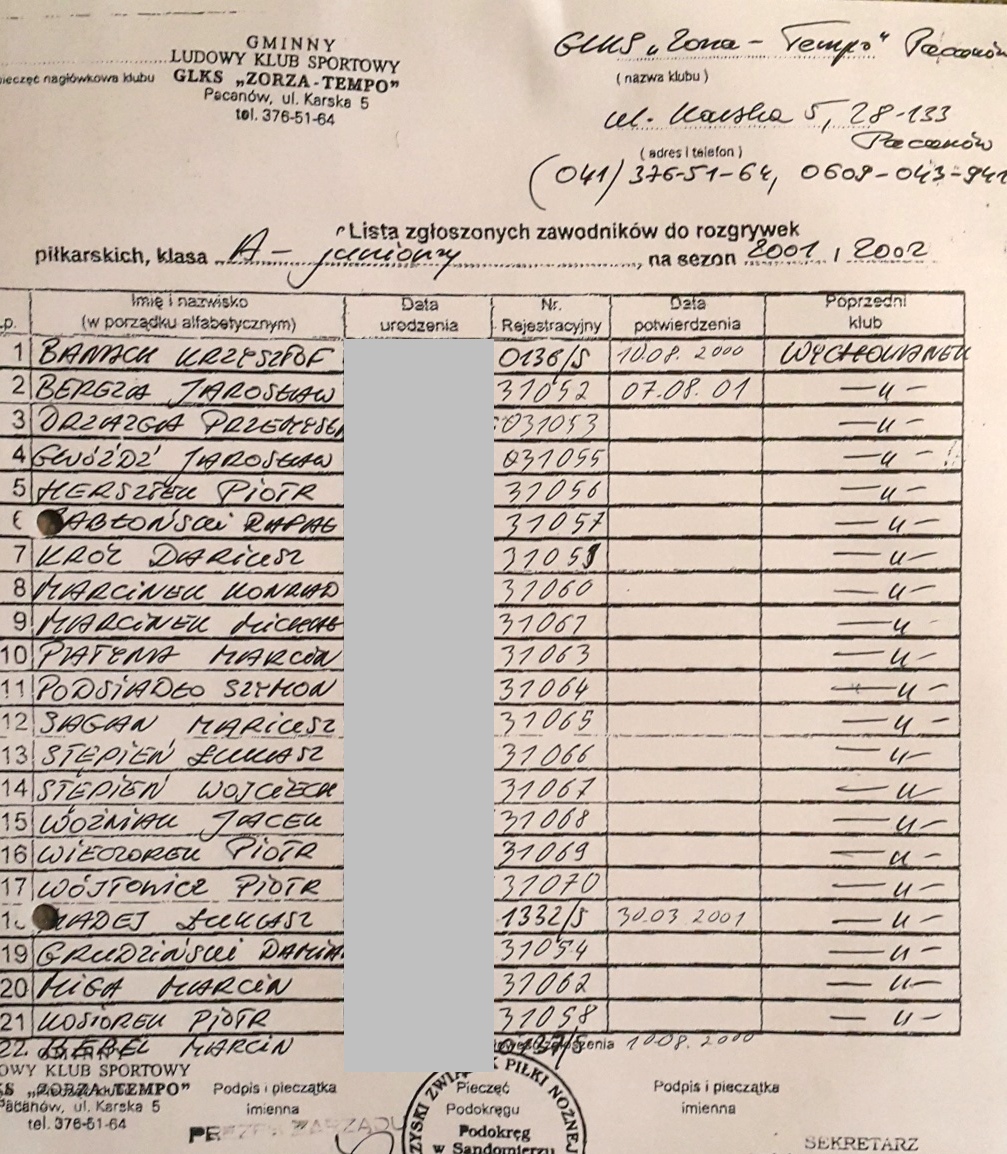 GMINNY
LUDOWY KLUB SPORTOWY
GLKS „ZORZA-TEMPO”
Pacanów, ul. Karska 5
tel. 376-51-64
pieczęć nagłówkowa klubu
GLKS „Zorza - Tempo” Pacanów
( nazwa klubu )
ul. Karska 5, 28-133
Pacanów
( adres i telefon )
(041) 376-51-64, 0609-043-941
Lista zgłoszonych zawodników do rozgrywek
piłkarskich, klasa A - juniorzy, na sezon 2001 / 2002
Lp. Imię i nazwisko (w porządku alfabetycznym) Data urodzenia Nr. Rejestracyjny Data potwierdzenia Poprzedni klub
1 BANACH KRZYSZTOF 0136/S 10.08.2000 WYCHOWANEK
2 BEREZA JAROSŁAW 31052 07.08.01 — u —
3 DRZAZGA PRZEMYSŁ 031053 — u —
4 GWÓŹDŹ JAROSŁAW 031055 — u —
5 HERSZTEK PIOTR 31056 — u —
6 JABŁOŃSKI RAFAŁ 31057 — u —
7 KRÓL DARIUSZ — u —
8 MARCINEK KONRAD 31060 — u —
9 MARCINEK MICHAŁ 31061 — u —
10 MARCIN 31063 — u —
11 PODSIADŁO SZYMON 31064 — u —
12 SAGAN MARIUSZ 31065 — u —
13 STĘPIEŃ ŁUKASZ 31066 — u —
14 STĘPIEŃ WOJCIECH 31067 — u —
15 WOŹNIAK JACEK 31068 — u —
16 WIECZOREK PIOTR 31069 — u —
17 WÓJTOWICZ PIOTR 31070 — u —
18 MADEJ ŁUKASZ 1332/S 30.03 2001 — u —
19 GRUDZIŃSKI DAMIA 31054 — u —
20 MIGA MARCIN 31062 — u —
21 KOSIOREK PIOTR 31058 — u —
22. BEBEL MARCIN 0137/S 10.08.2000
GMINNY
LUDOWY KLUB SPORTOWY
GLKS „ZORZA-TEMPO”
Pacanów, ul. Karska 5
tel. 376-51-64
Podpis i pieczątka
imienna
PREZES ZARZĄDU
Pieczęć
Podokręgu
ZWIĄZEK PIŁKI NOŻNEJ
Podokręg
w Sandomierzu
Podpis i pieczątka
imienna
SEKRETARZ